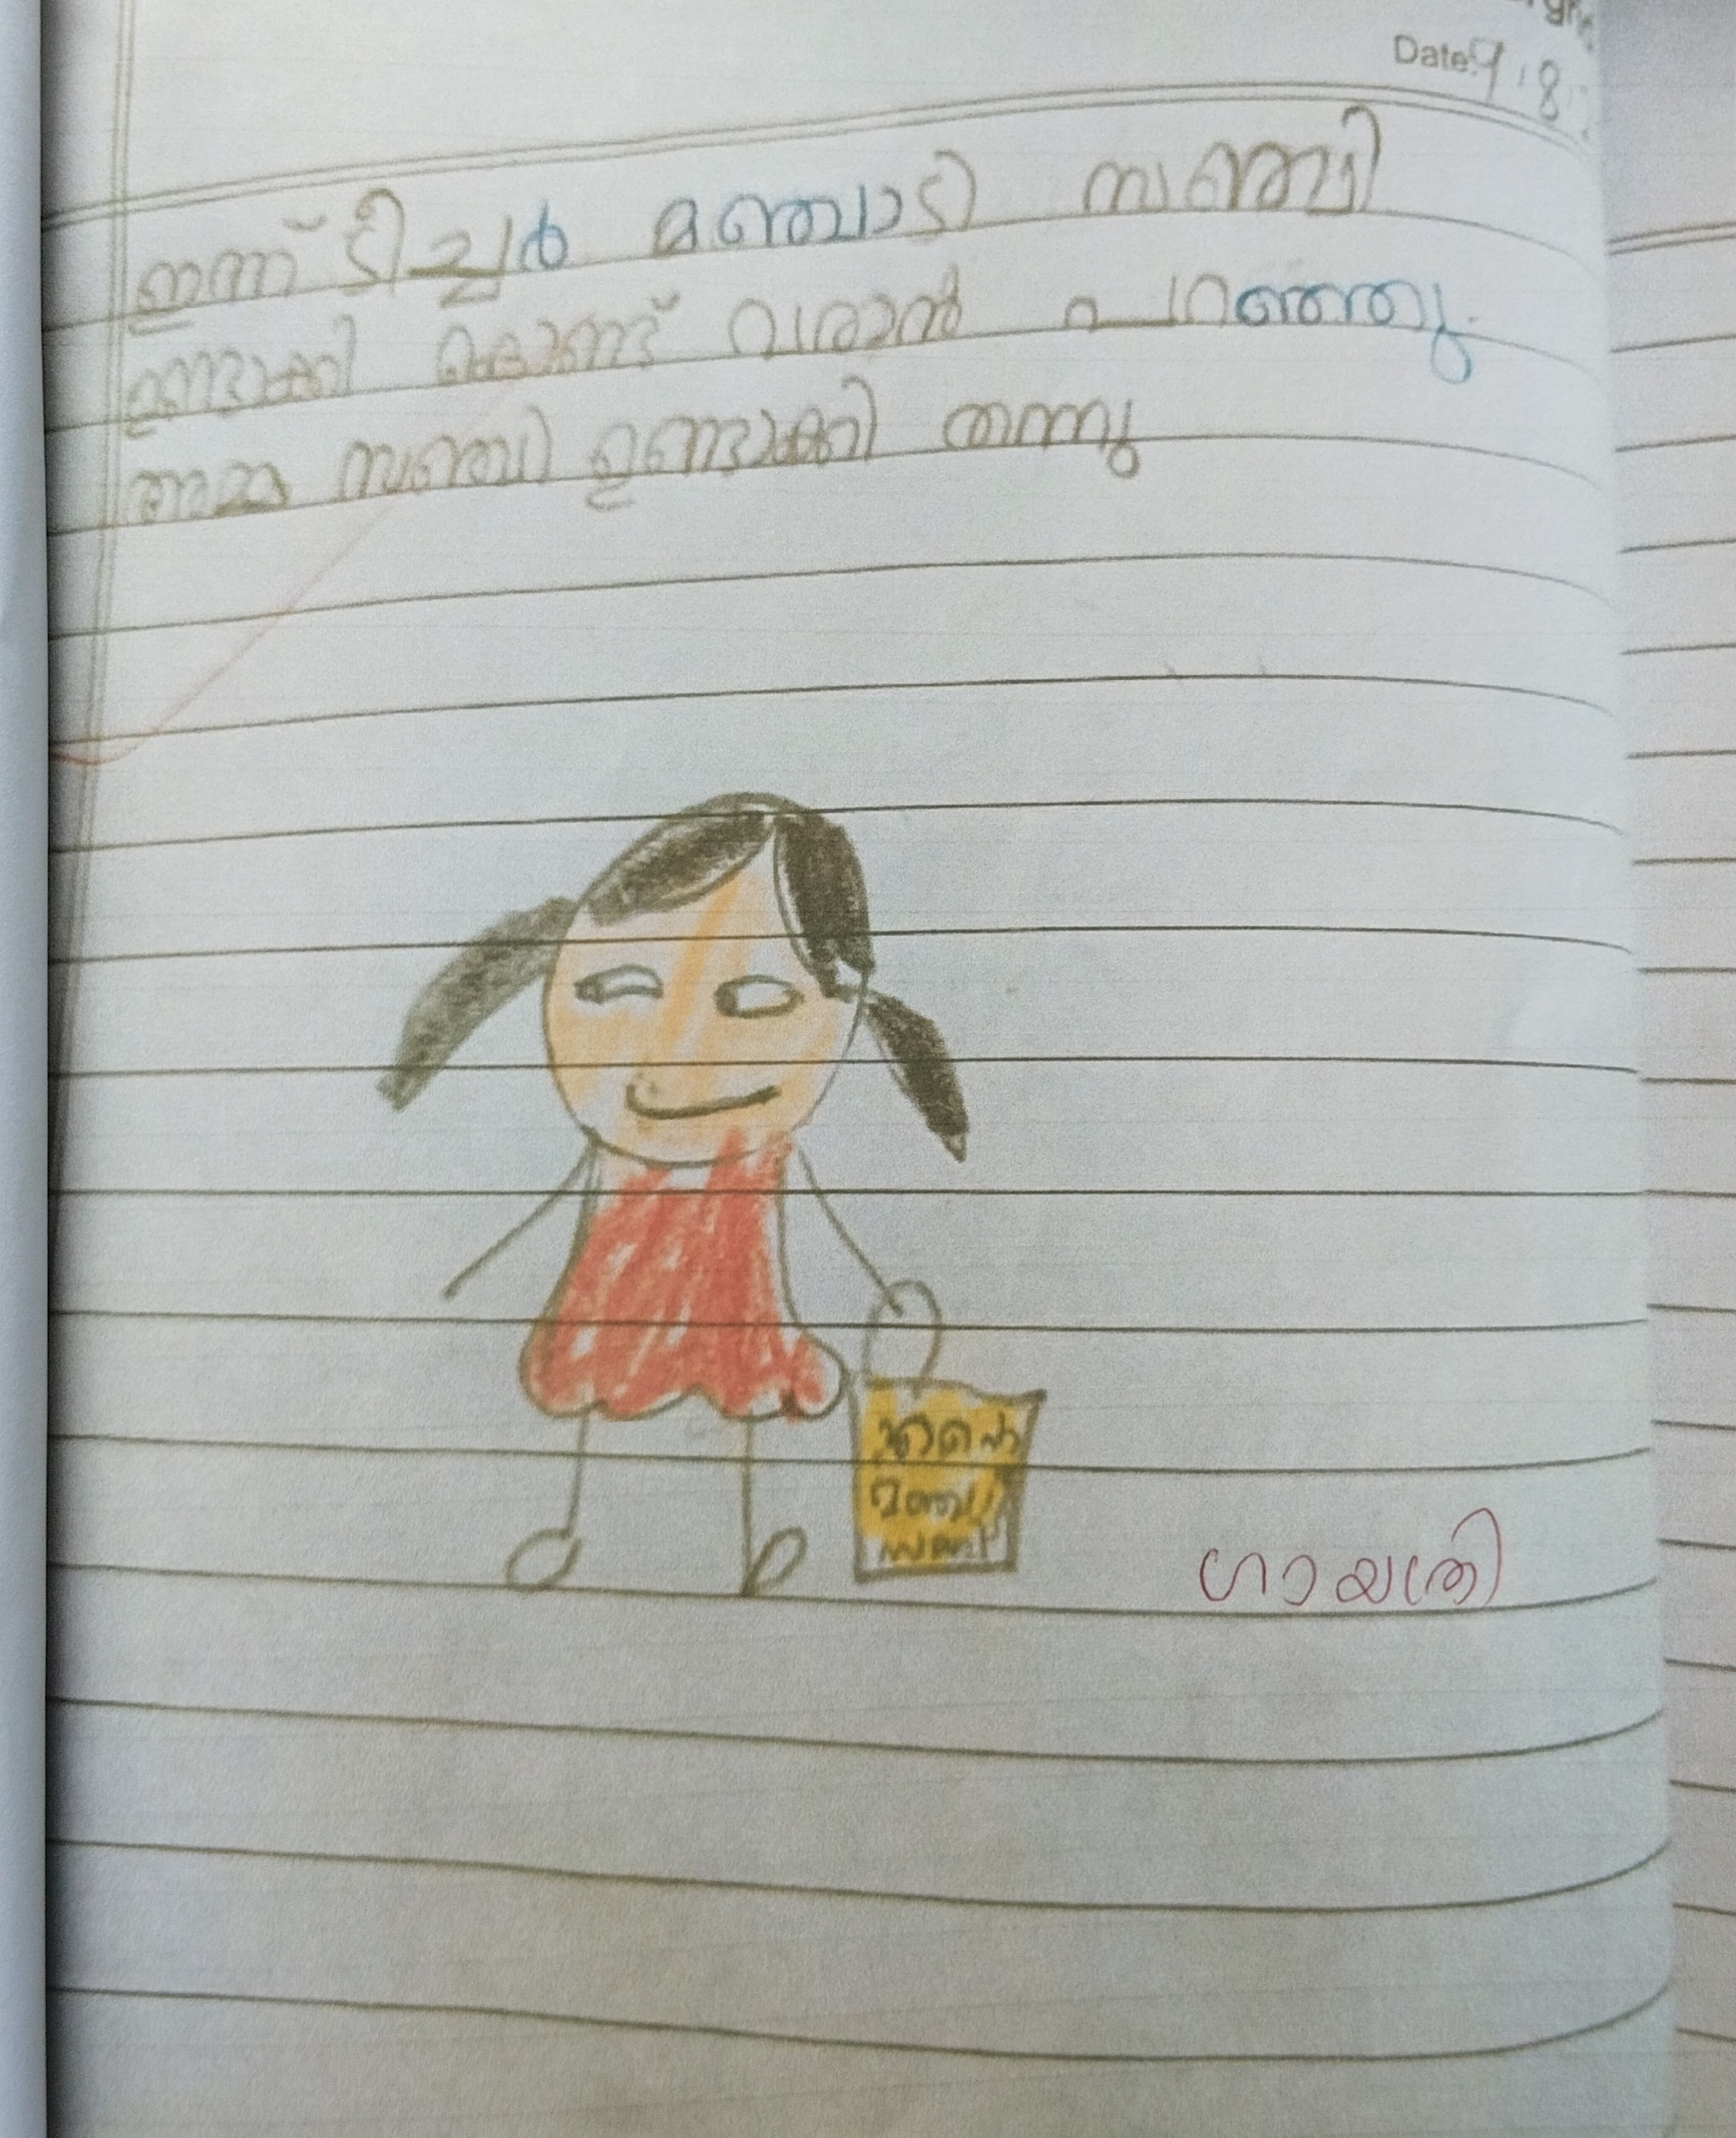 Date: 9.8
ഇന്ന് ടീച്ചർ മഞ്ചാടി സഞ്ചി
ഉണ്ടാക്കി കൊണ്ട് വരാൻ പറഞ്ഞു.
അമ്മ സഞ്ചി ഉണ്ടാക്കി തന്നു
എന്റെ
സഞ്ചി
ഗായത്രി